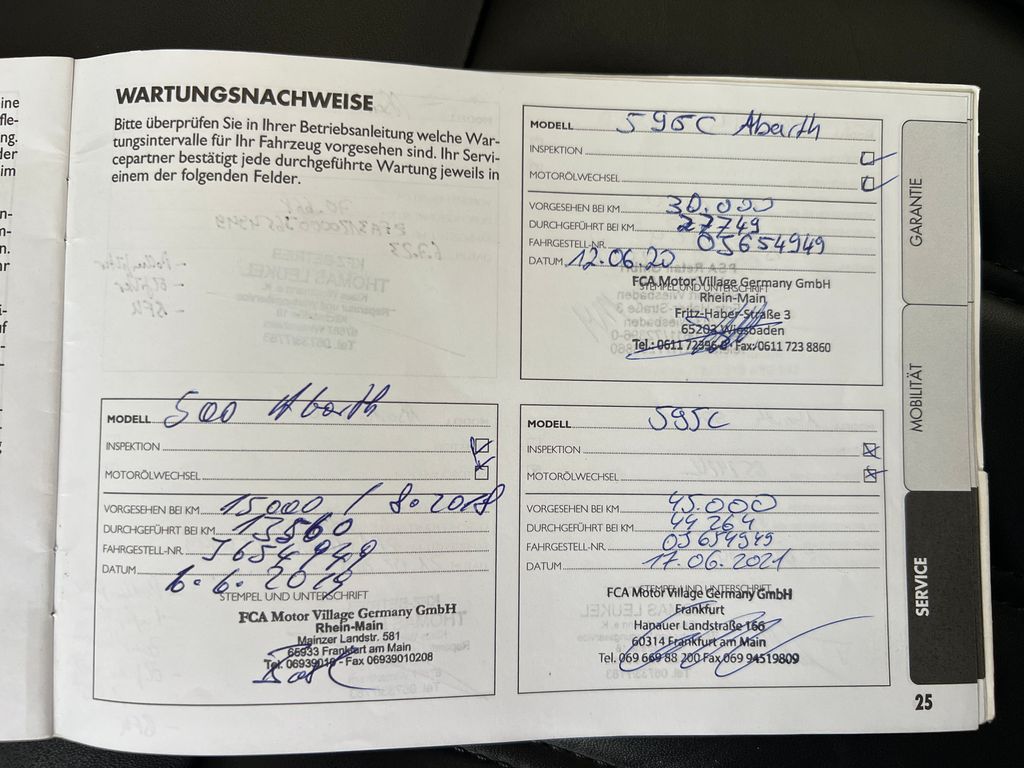 ine
fle-
ng.
der
im
n-
m-
n.
hr
i-
uf
WARTUNGSNACHWEISE
Bitte überprüfen Sie in Ihrer Betriebsanleitung welche War-
tungsintervalle für Ihr Fahrzeug vorgesehen sind. Ihr Servi-
cepartner bestätigt jede durchgeführte Wartung jeweils in
einem der folgenden Felder.
MODELL 595C Abarth
INSPEKTION
MOTORÖLWECHSEL
VORGESEHEN BEI KM 30.000
DURCHGEFÜHRT BEI KM 27749
FAHRGESTELL-NR. 0J654949
DATUM 12.06.20
STEMPEL UND UNTERSCHRIFT
FCA Motor Village Germany GmbH
Rhein-Main
Fritz-Haber-Straße 3
65203 Wiesbaden
Tel.: 0611 72396-0 · Fax: 0611 723 8860
MODELL 500 Abarth
INSPEKTION
MOTORÖLWECHSEL
VORGESEHEN BEI KM 15000 / 8.2018
DURCHGEFÜHRT BEI KM 13560
FAHRGESTELL-NR. J654949
DATUM 6.6.2019
STEMPEL UND UNTERSCHRIFT
FCA Motor Village Germany GmbH
Rhein-Main
Mainzer Landstr. 581
65933 Frankfurt am Main
Tel. 06939010 - Fax 06939010208
MODELL 595C
INSPEKTION
MOTORÖLWECHSEL
VORGESEHEN BEI KM 45.000
DURCHGEFÜHRT BEI KM 44264
FAHRGESTELL-NR. 0J654949
DATUM 17.06.2021
STEMPEL UND UNTERSCHRIFT
FCA Motor Village Germany GmbH
Frankfurt
Hanauer Landstraße 166
60314 Frankfurt am Main
Tel. 069 669 88 200 Fax 069 94519809
GARANTIE
MOBILITÄT
SERVICE
25